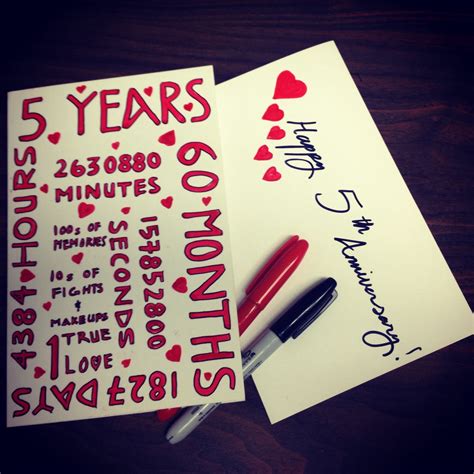 5 YEARS
60 MONTHS
2630880
MINUTES
4384 HOURS
100s OF
MEMORIES
SECONDS
157852800
10s OF
FIGHTS
&
MAKEUPS
1 TRUE
LOVE
1827 DAYS
Happy
5th
Anniversary!